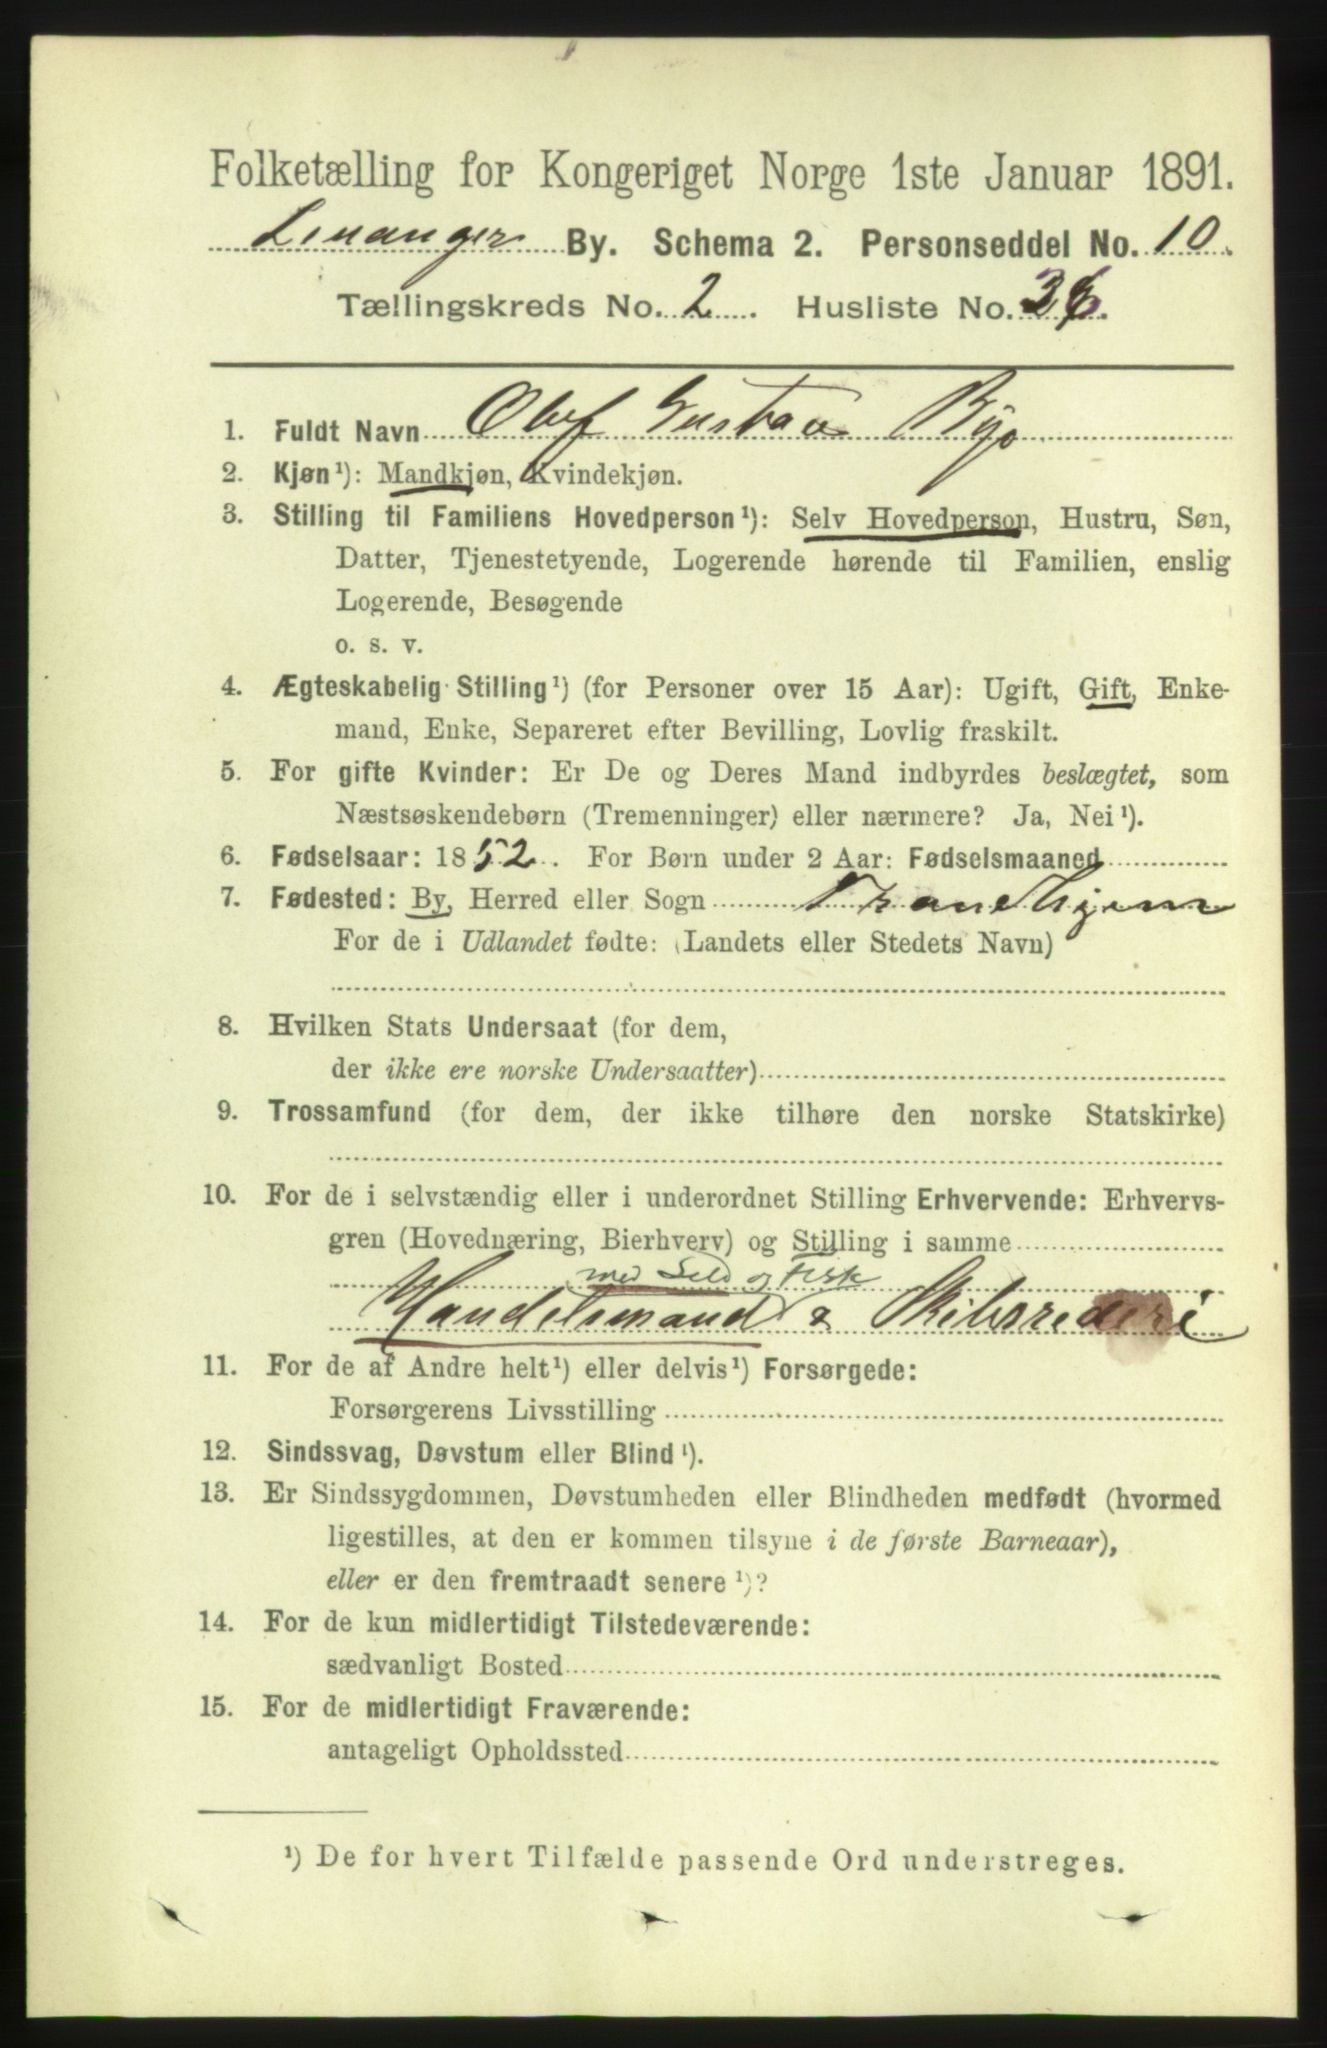 Folketælling for Kongeriget Norge 1ste Januar 1891.
Levanger By. Schema 2. Personseddel No. 10.
Tællingskreds No. 2. Husliste No. 36.
1. Fuldt Navn Olef Gustav Bye
2. Kjøn¹): Mandkjøn, Kvindekjøn.
3. Stilling til Familiens Hovedperson¹): Selv Hovedperson, Hustru, Søn,
Datter, Tjenestetyende, Logerende hørende til Familien, enslig
Logerende, Besøgende
o. s. v.
4. Ægteskabelig Stilling¹) (for Personer over 15 Aar): Ugift, Gift, Enke-
mand, Enke, Separeret efter Bevilling, Lovlig fraskilt.
5. For gifte Kvinder: Er De og Deres Mand indbyrdes beslægtet, som
Næstsøskendebørn (Tremenninger) eller nærmere? Ja, Nei¹).
6. Fødselsaar: 1852. For Børn under 2 Aar: Fødselsmaaned
7. Fødested: By, Herred eller Sogn Trondhjem
For de i Udlandet fødte: (Landets eller Stedets Navn)
8. Hvilken Stats Undersaat (for dem,
der ikke ere norske Undersaatter)
9. Trossamfund (for dem, der ikke tilhøre den norske Statskirke)
10. For de i selvstændig eller i underordnet Stilling Erhvervende: Erhvervs-
gren (Hovednæring, Bierhverv) og Stilling i samme
med Sild og Fisk
Handelsmand & Skibsrederi
11. For de af Andre helt¹) eller delvis¹) Forsørgede:
Forsørgerens Livsstilling
12. Sindssvag, Døvstum eller Blind¹).
13. Er Sindssygdommen, Døvstumheden eller Blindheden medfødt (hvormed
ligestilles, at den er kommen tilsyne i de første Barneaar),
eller er den fremtraadt senere¹)?
14. For de kun midlertidigt Tilstedeværende:
sædvanligt Bosted
15. For de midlertidigt Fraværende:
antageligt Opholdssted
¹) De for hvert Tilfælde passende Ord understreges.